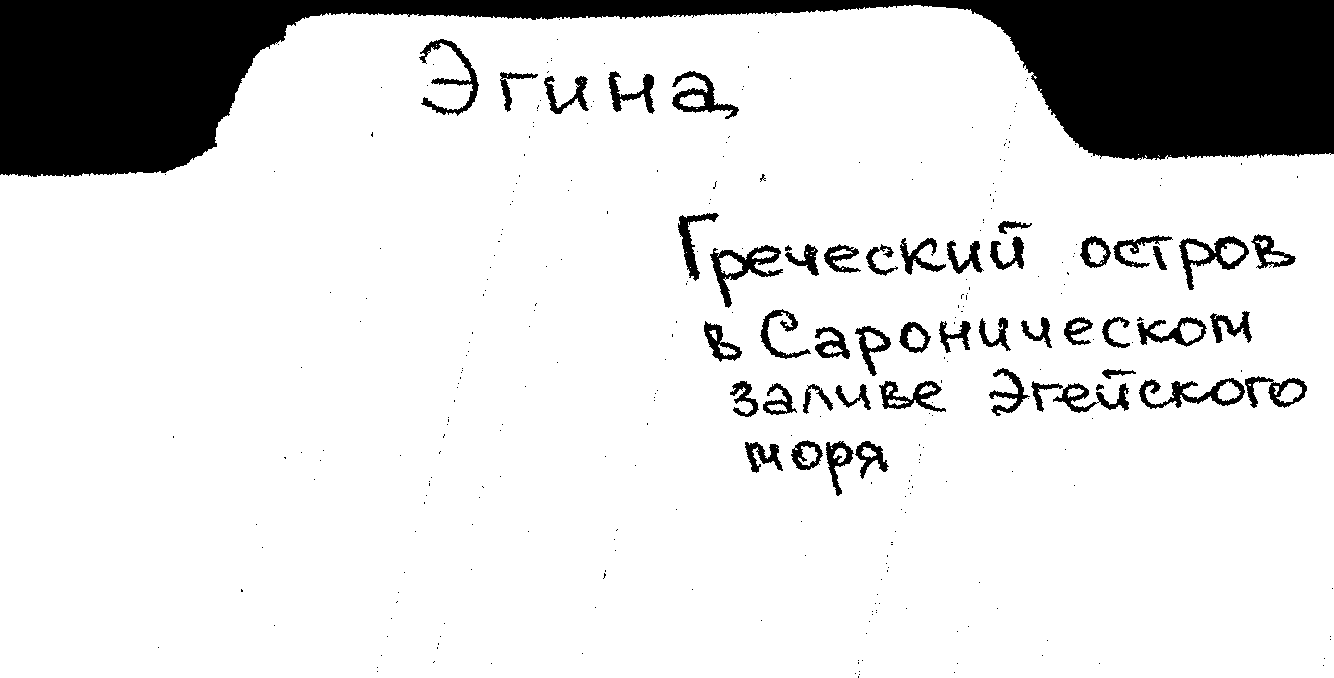 Эгина
Греческий остров
в Сароническом
заливе Эгейского
моря